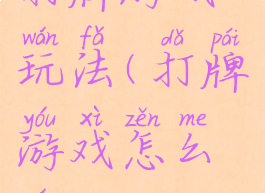 wán fǎ dǎ pái
玩法(打牌
yóu xì zěn me
游戏怎么